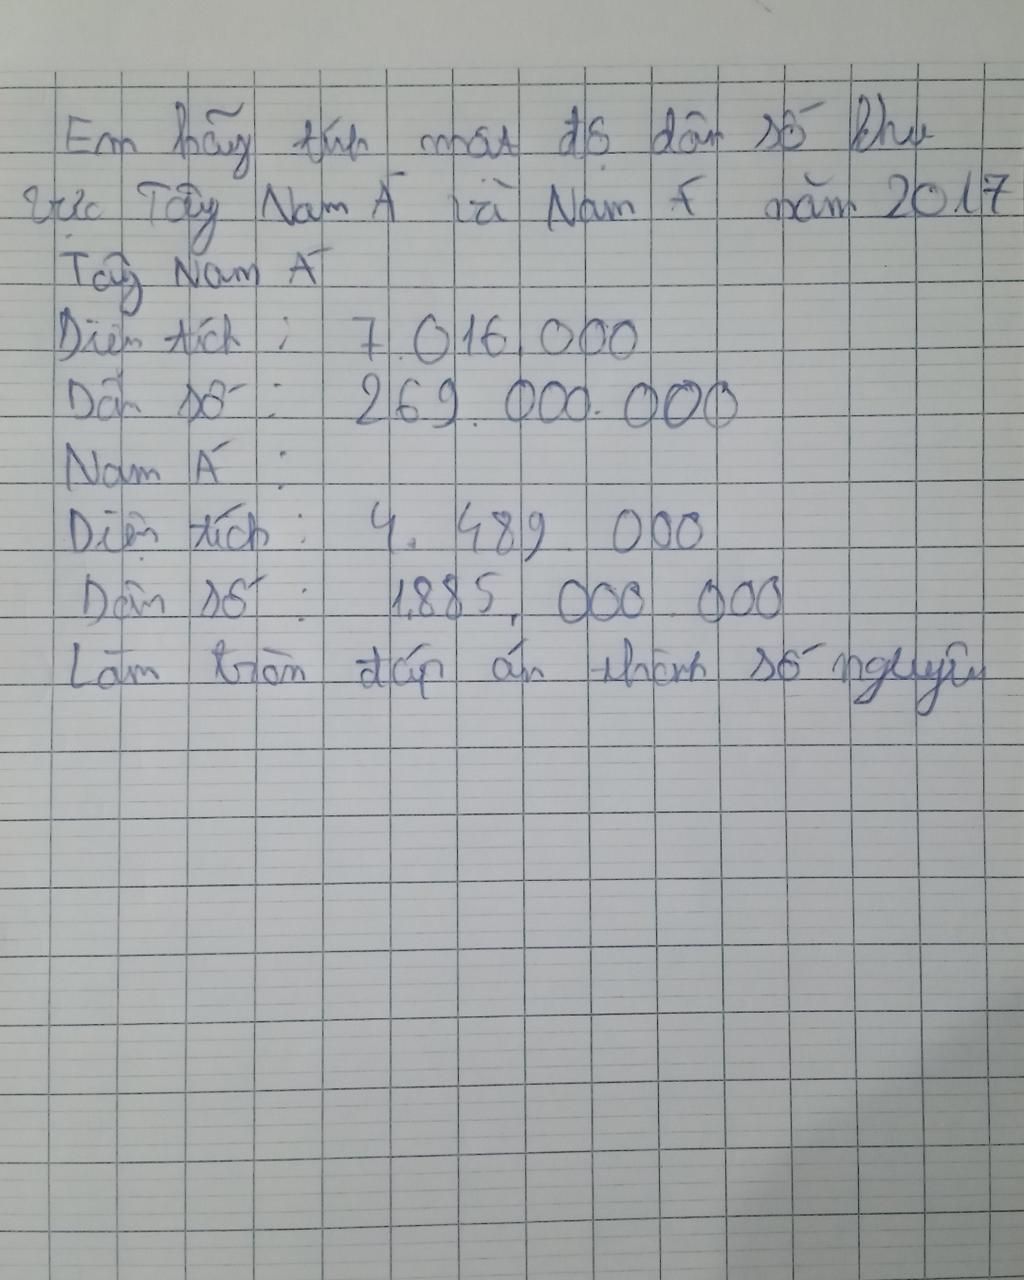 Em hãy tính mật độ dân số khu
vực Tây Nam Á và Nam Á năm 2017
Tây Nam Á
Diện tích : 7.016.000
Dân số : 269.000.000
Nam Á :
Diện tích : 4.489.000
Dân số : 1.885.000.000
Làm tròn đáp án thành số nguyên